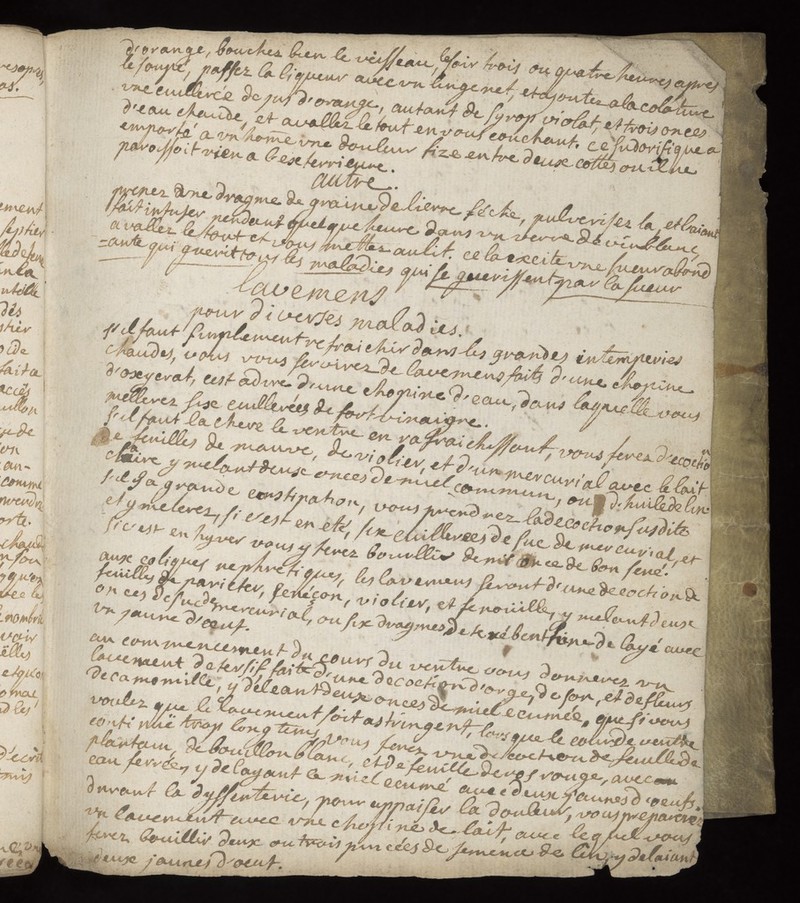 d'orange, bouchez bien le veisseau, le soir trois ou quatre heures apres
le soupé, passez la liqueur avec vn linge net, et ajoutez a la colature
vne cuillerée de jus d'orange, autant de syrop violat, et trois onces
d'eau chaude, et avallez le tout en vous couchant. ce sudorifique a
emporté a vn home vne douleur fixe entre deux cottes ou il ne
paroissoit rien a l'exterrieure.
autre.
prenez vne dragme de graine de lierre séche, pulverisez la, et l'aiant
fait infuser pendant quelque heure dans vn verre de vin blanc,
avallez le tout et vous mettez au lit. cela excite vne sueur abond
-ante qui guerit tous les maladies qui se guerissent par la sueur
lavemens
pour diverses maladies.
s'il faut simplement refraichir dans les grandes intemperies
chaudes, vous vous servirez de lavemens faits d'une chopine
d'oxycrat, c'est a dire d'une chopine d'eau, dans laquelle vous
mellerez sixe cuillerées de fort vinaigre.
s'il faut lachere le ventre en rafraichessant, vous ferez decoction
de feuilles de mauve, de violier, et d'un mercurial avec le lait
claire y melant deux onces de miel commun, ou d'huile de lin
s'il y a grande constipation, vous prendrez la decoction susdite
et y melerez, si c'est en été, six cuillerées de suc de mercurial, et
si c'est en hyver vous y ferez bouillir demi once de bon sené.
aux coliques nephretiques, les lavemens seront d'une decoction de
feuilles de parieter, seneçon, violier, et fenouille, y melant deux
onces de suc de mercurial, ou six dragmes de terébentine delayé avec
vn jaune d'oeuf.
au commencement du cours du ventre vous donnerez vn
lavement detersif faite d'une decoction d'orge, de son, et de fleurs
de camomille, y déleant deux onces de miel ecumée, que si vous
voulez que le lavement soit astringent, lorsque le cour de ventre
continuë trop long tems, vous ferez vne decoction de feuille de
plantain, de bouillon blanc, et de feuille de ros rouge, avec
eau ferrée, y delayant le miel ecumé avec deux jaunes d'oeufs.
durant la dyssenterie, pour appaiser la douleur, vous preparerez
vn lavement avec vne chopine de lait, avec lequel vous
ferez bouillir deux ou trois pincées de semence de lin, y delaiant
deux jaunes d'oeuf.